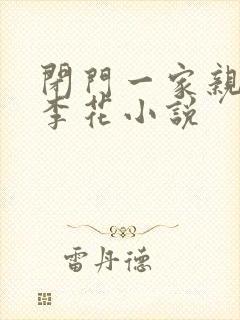 閉門一家親
李花小說
雷丹德